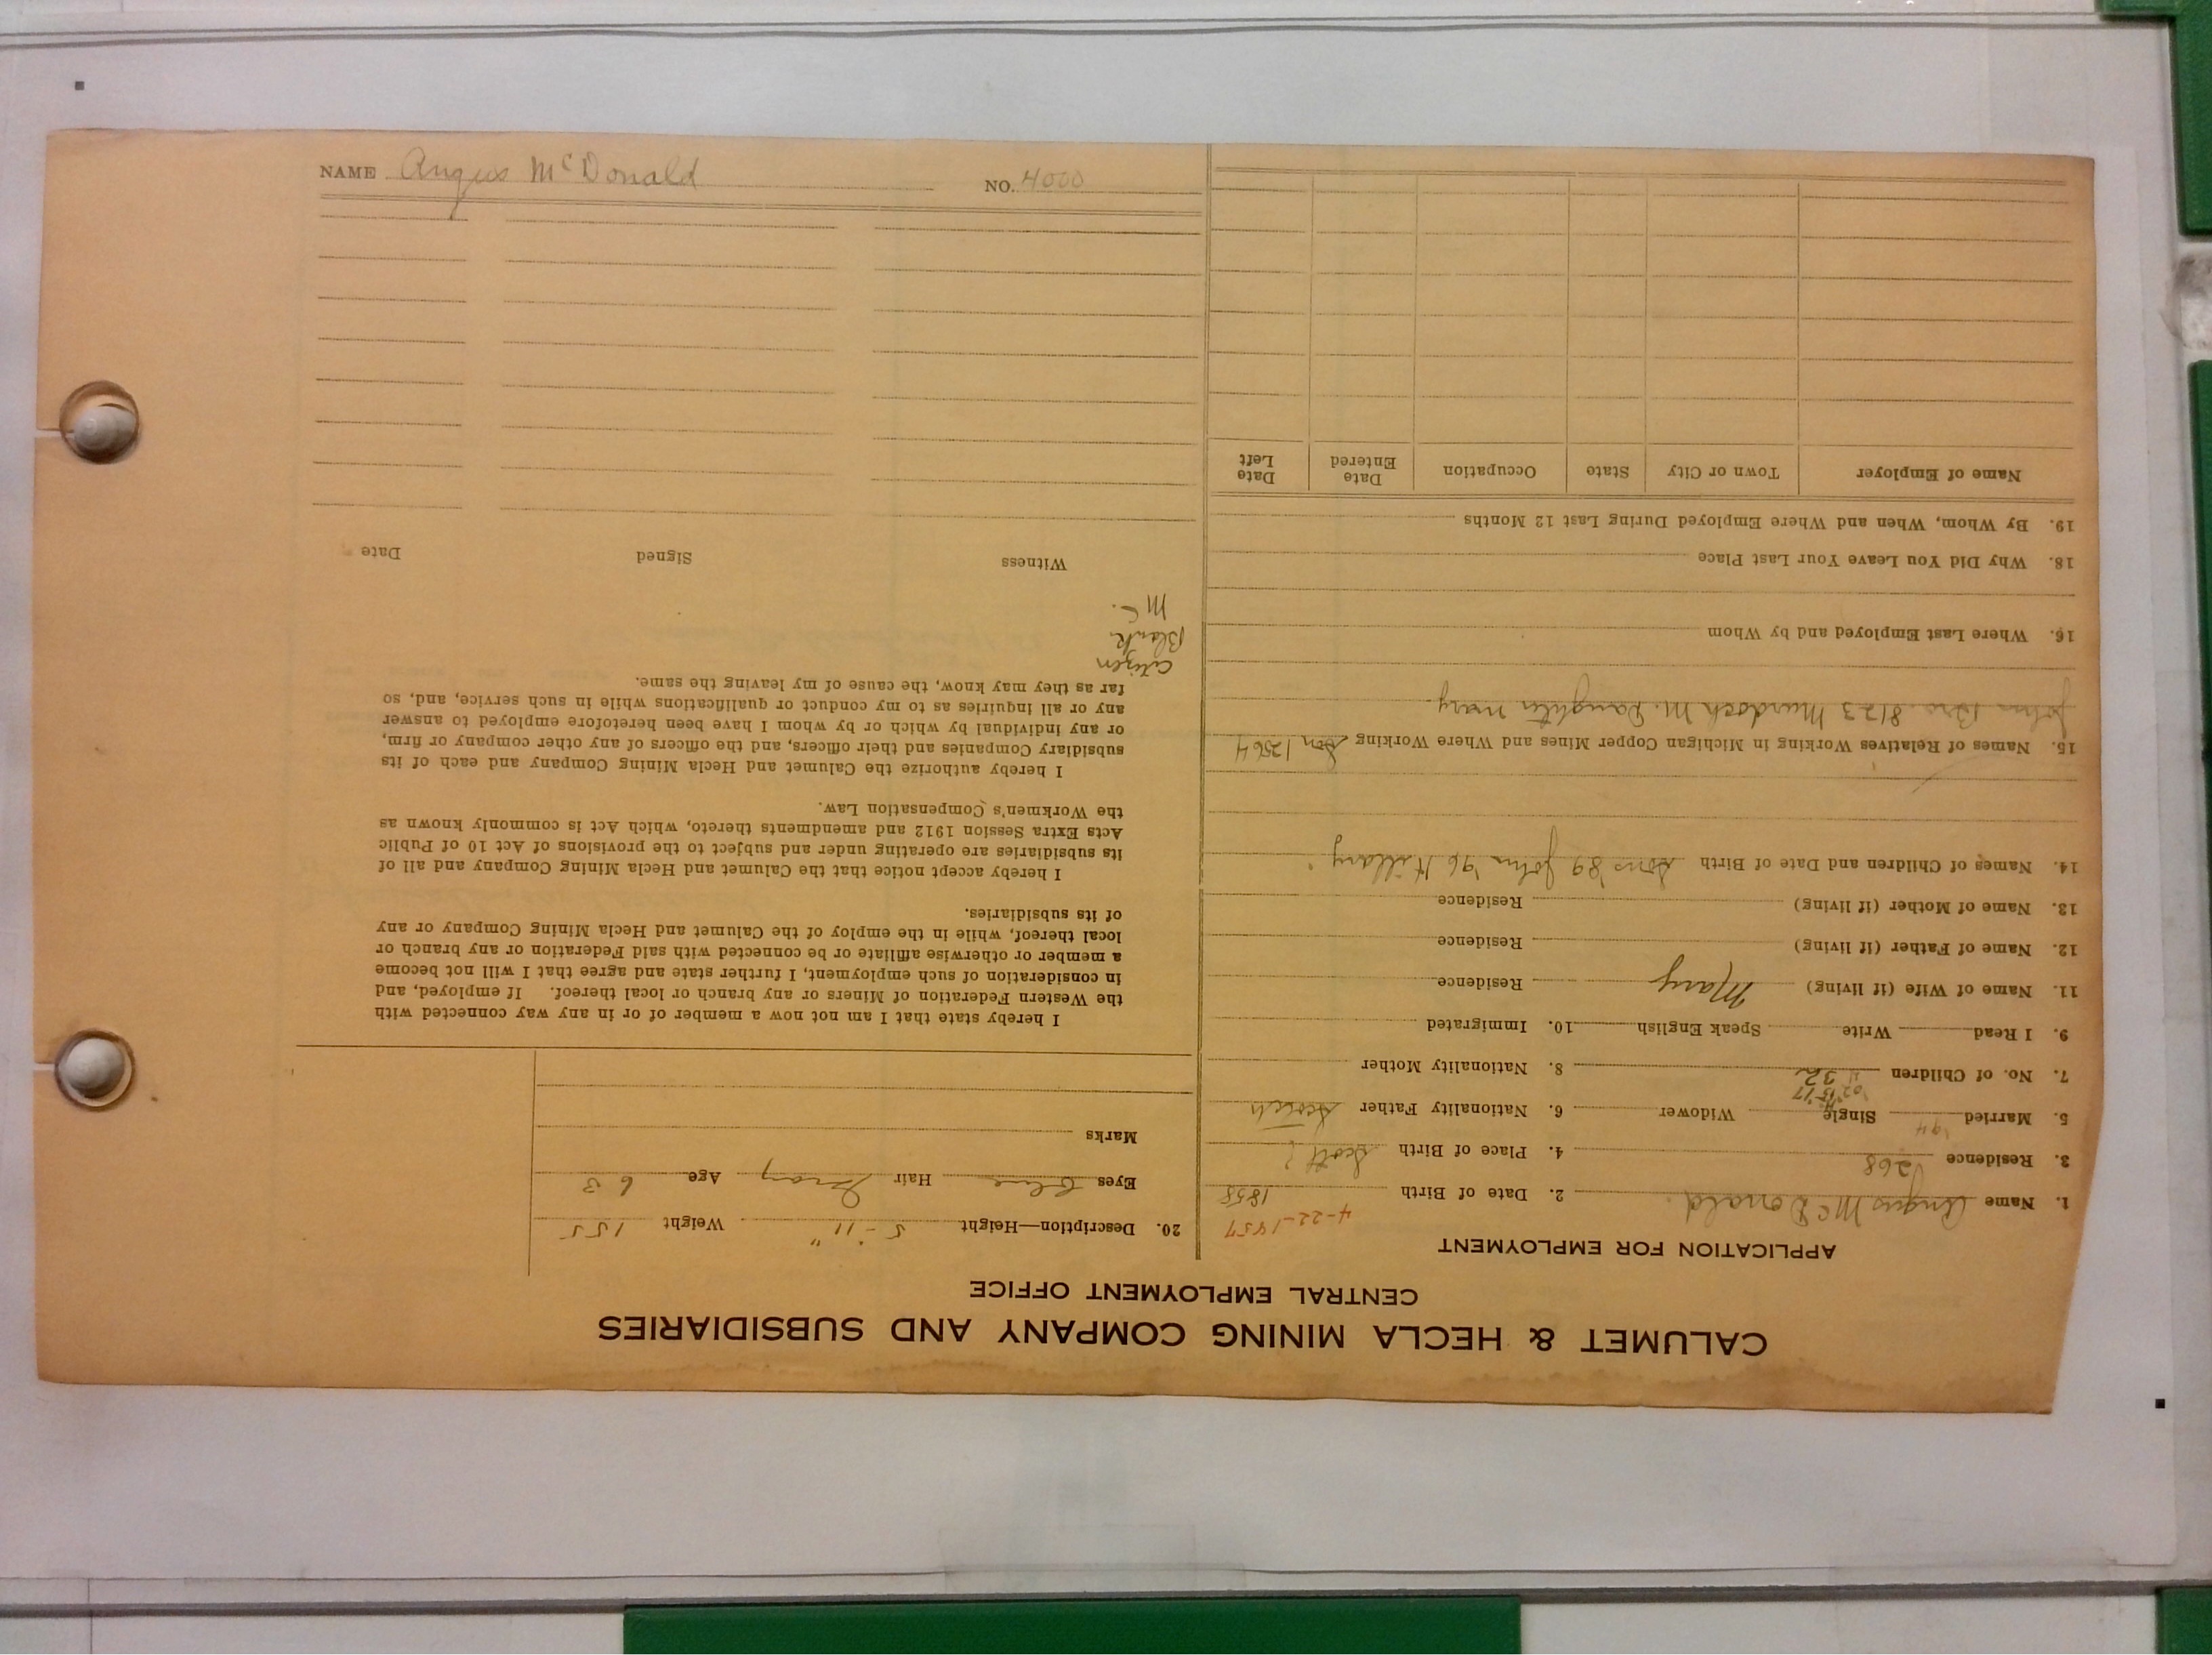 CALUMET & HECLA MINING COMPANY AND SUBSIDIARIES
CENTRAL EMPLOYMENT OFFICE
APPLICATION FOR EMPLOYMENT
4-22-1857
1. Name Angus McDonald. 2. Date of Birth 1858
3. Residence 268 4. Place of Birth Scotl
5. Married '94 Single Widower 6. Nationality Father Scotch
'02 '15 '17
7. No. of Children 32 8. Nationality Mother
9. I Read Write Speak English 10. Immigrated
11. Name of Wife (if living) Mary Residence
12. Name of Father (if living) Residence
13. Name of Mother (if living) Residence
14. Names of Children and Date of Birth Sons '89 John '96 Hillary
15. Names of Relatives Working in Michigan Copper Mines and Where Working Son 12564
John Bro. 8123 Murdoch M. Daughter Mary.
16. Where Last Employed and by Whom
18. Why Did You Leave Your Last Place
19. By Whom, When and Where Employed During Last 12 Months
Name of Employer Town or City State Occupation Date Entered Date Left
20. Description—Height 5-11" Weight 155
Eyes Blue Hair Gray Age 63
Marks
I hereby state that I am not now a member of or in any way connected with
the Western Federation of Miners or any branch or local thereof. If employed, and
in consideration of such employment, I further state and agree that I will not become
a member or otherwise affiliate or be connected with said Federation or any branch or
local thereof, while in the employ of the Calumet and Hecla Mining Company or any
of its subsidiaries.
I hereby accept notice that the Calumet and Hecla Mining Company and all of
its subsidiaries are operating under and subject to the provisions of Act 10 of Public
Acts Extra Session 1912 and amendments thereto, which Act is commonly known as
the Workmen's Compensation Law.
I hereby authorize the Calumet and Hecla Mining Company and each of its
subsidiary Companies and their officers, and the officers of any other company or firm,
or any individual by which or by whom I have been heretofore employed to answer
any or all inquiries as to my conduct or qualifications while in such service, and, so
far as they may know, the cause of my leaving the same.
Citizen
Blank.
M C.
Witness Signed Date
NAME Angus McDonald NO. 4000